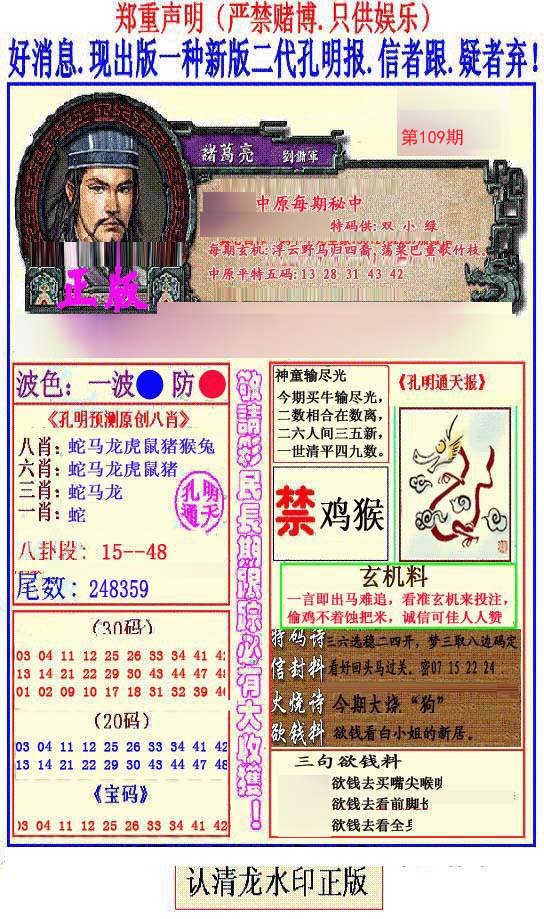 郑重声明（严禁赌博.只供娱乐）
好消息.现出版一种新版二代孔明报.信者跟.疑者弃!
諸葛亮 劉備軍
第109期
中原每期秘中
特码供: 双 小 绿
每期玄机: 浮云野马归四裔，荡桨巴童歌竹枝.
中原平特五码: 13 28 31 43 42
正版
波色：一波 防
《孔明预测原创八肖》
八肖：蛇马龙虎鼠猪猴兔
六肖：蛇马龙虎鼠猪
三肖：蛇马龙
一肖：蛇
孔明
通天
八卦段：15--48
尾数：248359
(30码)
03 04 11 12 25 26 33 34 41 42
13 14 21 22 27 28 45 46 47 48
01 02 09 10 17 18 31 32 39 40
(20码)
03 04 11 12 25 26 33 34 41 42
13 14 21 22 27 28 45 46 47 48
《宝码》
03 04 11 12 25 26 33 34 41 42
敬請彩民長期跟踪必有大收獲！
神童输尽光
今期买牛输尽光，
二数相合在数离，
二六人间三五新，
一世清平四九数。
《孔明通天报》
禁 鸡猴
玄机料
一言即出马难追，看准玄机来投注，
偷鸡不着蚀把米，诚信可佳人人赞
特码诗 三六选稳二四开，梦三取八边码定
信封料 看好回头马过关。密07 15 22 24
火烧诗 今期大烧“狗”
欲钱料 欲钱看白小姐的新居。
三句欲钱料
欲钱去买嘴尖喉
欲钱去看前脚
欲钱去看全
认清龙水印正版